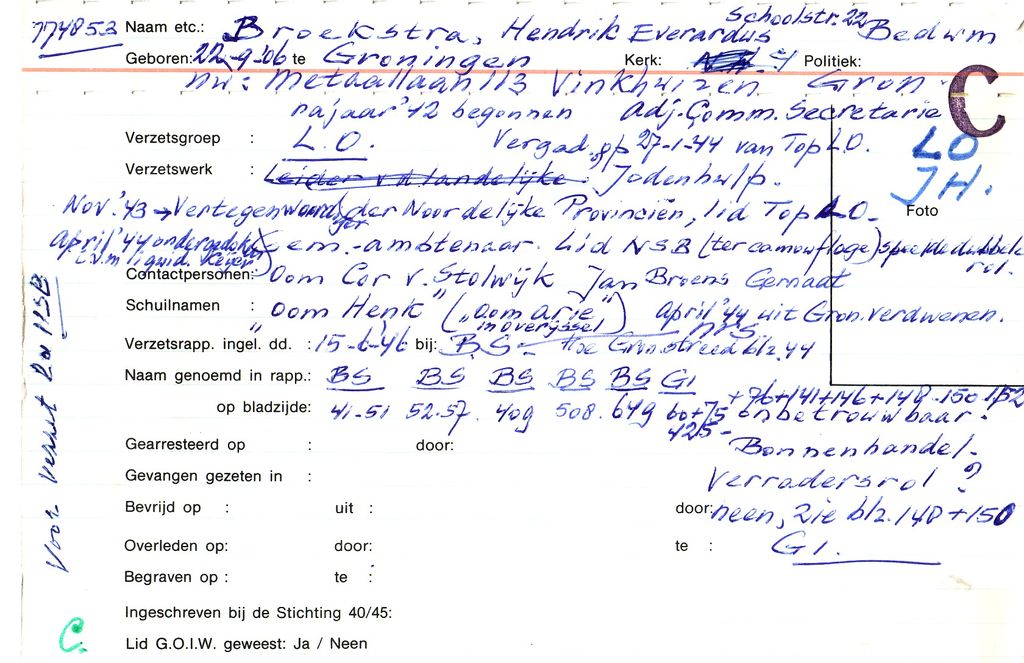 Schoolstr. 22
774853 Naam etc.: Broekstra, Hendrik Everardus Bedum
Geboren: 22-9-'06 te Groningen Kerk: Politiek:
nu: Metaallaan 113 Vinkhuizen Gron.
najaar '42 begonnen adj. Comm. Secretarie
C
Verzetsgroep : L.O. Vergad. op 27-1-44 van Top L.O.
LO
Verzetswerk : Leider v.d. landelijke Jodenhulp.
JH.
Foto
Nov. '43 → Vertegenwoordiger der Noordelijke Provinciën, lid Top LO
April '44 ondergedoken em.-ambtenaar. Lid NSB (ter camouflage) speelde dubbelrol.
i.v.m. liquid. Keijer
Contactpersonen: Oom Cor v. Stolwijk Jan Broens Gernaat
Schuilnamen : "Oom Henk" ("oom arie" in overijssel) April '44 uit Gron. verdwenen.
Verzetsrapp. ingel. dd. : 15-6-46 bij: B.S. - Hoe Gron. streed blz. 44
Naam genoemd in rapp.: BS BS BS BS BS G1
op bladzijde: 41-51 52-57. 409 508. 649 60+75 +76+141+146+148-150 152
425- onbetrouwbaar.
Gearresteerd op : door:
Bonnenhandel.
Gevangen gezeten in :
Verradersrol ?
Bevrijd op : uit : door:
neen, zie blz. 148+150
G1.
Overleden op: door: te :
Begraven op : te :
Ingeschreven bij de Stichting 40/45:
Lid G.O.I.W. geweest: Ja / Neen
Voor verzet
C.